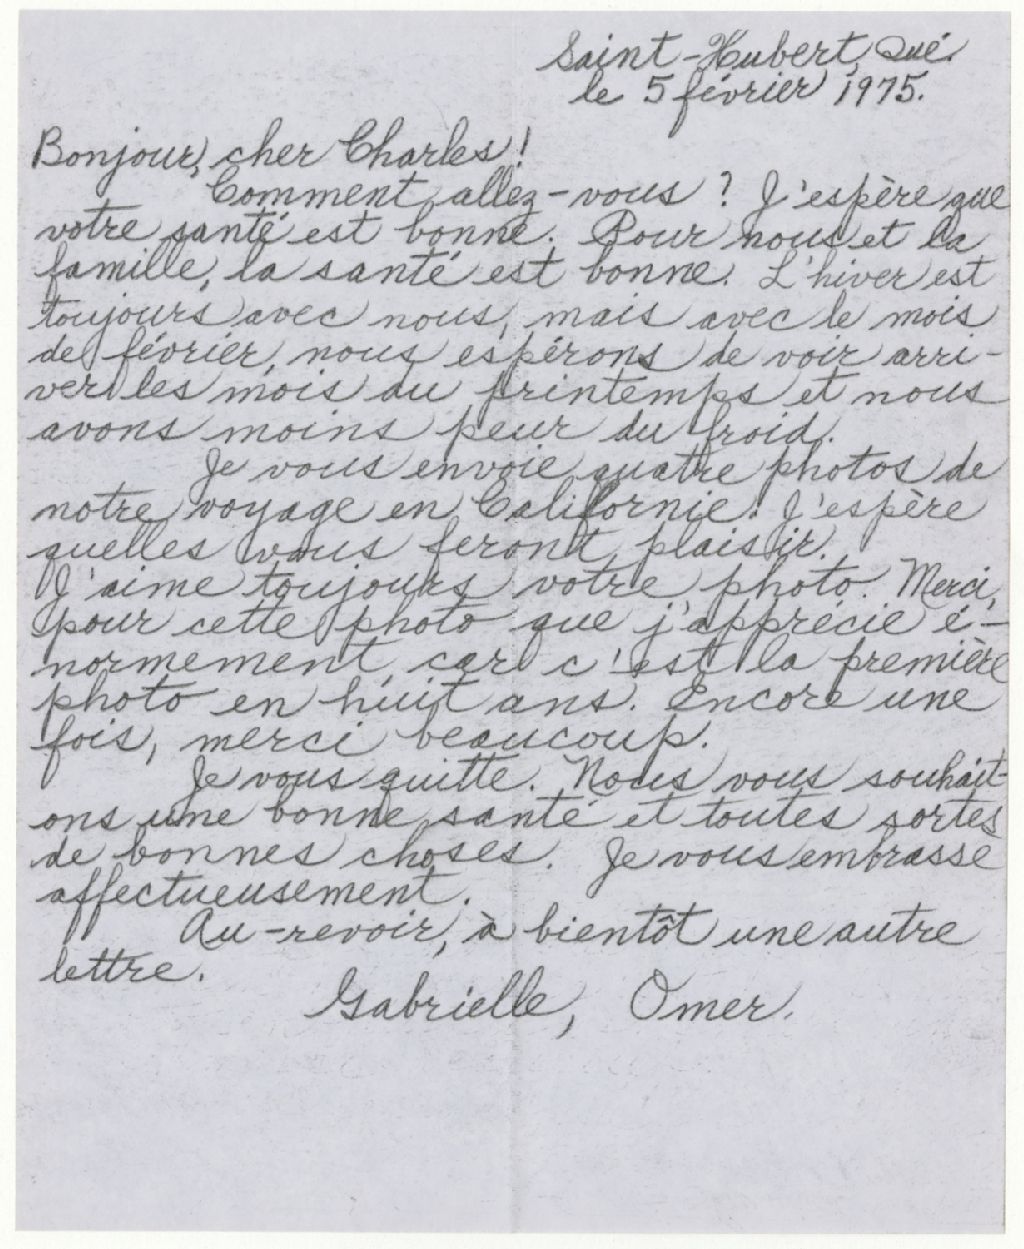 Saint-Hubert, Qué.
le 5 février 1975.
Bonjour, cher Charles!
Comment allez-vous ? J'espère que
votre santé est bonne. Pour nous et la
famille, la santé est bonne. L'hiver est
toujours avec nous, mais avec le mois
de février, nous espérons de voir arri-
ver les mois du printemps et nous
avons moins peur du froid.
Je vous envoie quatre photos de
notre voyage en Californie. J'espère
quelles vous feront plaisir.
J'aime toujours votre photo. Merci,
pour cette photo que j'apprécie é-
normement, car c'est la première
photo en huit ans. Encore une
fois, merci beaucoup.
Je vous quitte. Nous vous souhait-
ons une bonne santé et toutes sortes
de bonnes choses. Je vous embrasse
affectueusement.
Au-revoir, à bientôt une autre
lettre.
Gabrielle, Omer.